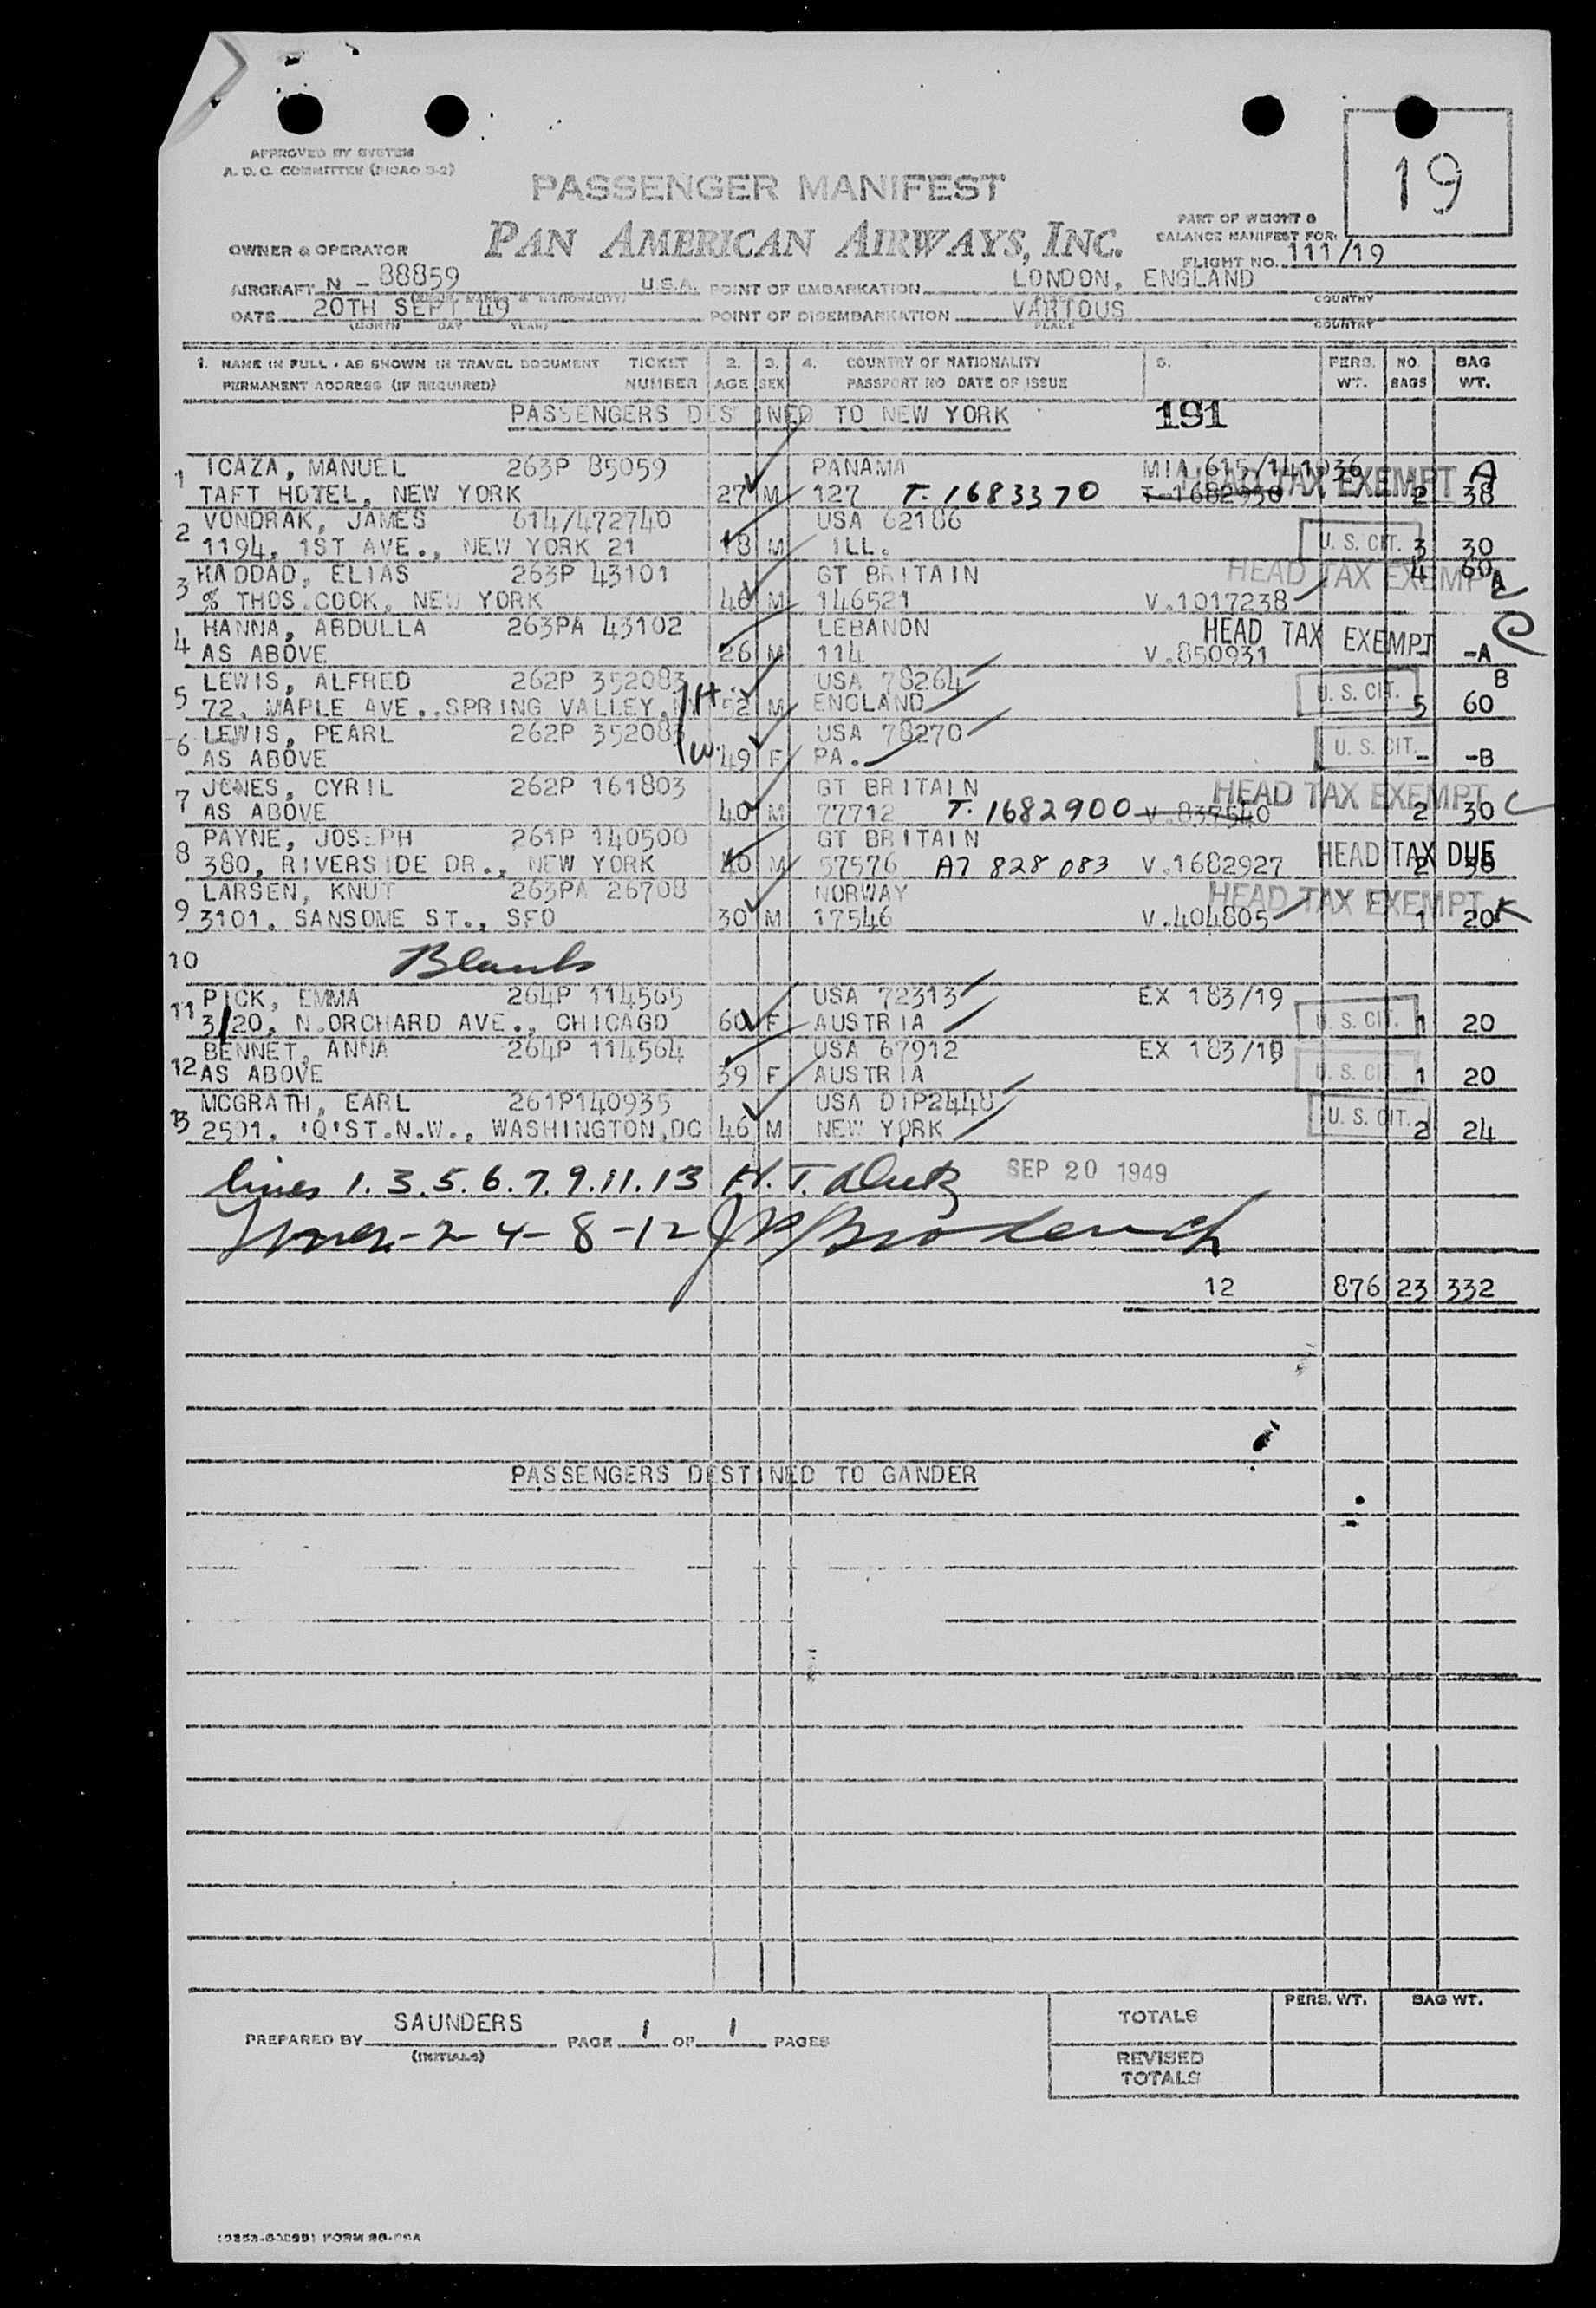 19
APPROVED BY SYSTEM
A. D. C. COMMITTEE (PICAO 9-2)
PASSENGER MANIFEST
PAN AMERICAN AIRWAYS, INC.
PART OF WEIGHT &
BALANCE MANIFEST FOR:
FLIGHT NO. 111/19
OWNER & OPERATOR
AIRCRAFT N - 88859 U.S.A. POINT OF EMBARKATION LONDON, ENGLAND
PLACE COUNTRY
DATE 20TH SEPT 49 POINT OF DISEMBARKATION VARIOUS
(MONTH DAY YEAR) PLACE COUNTRY
1. NAME IN FULL - AS SHOWN IN TRAVEL DOCUMENT TICKET 2. 3. 4. COUNTRY OF NATIONALITY 5. PERS. NO. BAG
PERMANENT ADDRESS (IF REQUIRED) NUMBER AGE SEX PASSPORT NO DATE OF ISSUE WT. BAGS WT.
PASSENGERS DESTINED TO NEW YORK 191
1 ICAZA, MANUEL 263P 85059 PANAMA MIA 615/141036
TAFT HOTEL, NEW YORK 27 M 127 T. 1683370 T-1682930 HEAD TAX EXEMPT A 2 38
2 VONDRAK, JAMES 614/472740 USA 62186
1194, 1ST AVE., NEW YORK 21 18 M ILL. U. S. CIT. 3 30
3 HADDAD, ELIAS 263P 43101 GT BRITAIN HEAD TAX EXEMPT 4 60 A
% THOS.COOK, NEW YORK 46 M 146521 V.1017238
4 HANNA, ABDULLA 263PA 43102 LEBANON HEAD TAX EXEMPT
AS ABOVE 26 M 114 V.850931 - -A
5 LEWIS, ALFRED 262P 352083 H. USA 78264 B
72, MAPLE AVE., SPRING VALLEY, 52 M ENGLAND U. S. CIT. 5 60
6 LEWIS, PEARL 262P 352083 W. USA 78270
AS ABOVE 49 F PA. U. S. CIT. - -B
7 JONES, CYRIL 262P 161803 GT BRITAIN HEAD TAX EXEMPT
AS ABOVE 40 M 77712 T. 1682900 V.837540 2 30 C
8 PAYNE, JOSEPH 261P 140500 GT BRITAIN
380, RIVERSIDE DR., NEW YORK 40 M 57576 A7 828 083 V.1682927 HEAD TAX DUE 2 30
9 LARSEN, KNUT 263PA 26708 NORWAY HEAD TAX EXEMPT
3101, SANSOME ST., SFO 30 M 17546 V.404805 1 20
10 Blank
11 PICK, EMMA 264P 114565 USA 72313 EX 183/19
3120, N.ORCHARD AVE., CHICAGO 60 F AUSTRIA U. S. CIT. 1 20
12 BENNET, ANNA 264P 114564 USA 67912 EX 183/19
AS ABOVE 39 F AUSTRIA U. S. CIT. 1 20
13 MCGRATH, EARL 261P140935 USA DIP2448
2501, 'Q'ST.N.W., WASHINGTON,DC 46 M NEW YORK U. S. CIT. 2 24
lines 1.3.5.6.7.9.11.13 H.T. SEP 20 1949
Lines-2-4-8-12
12 876 23 332
PASSENGERS DESTINED TO GANDER
PREPARED BY SAUNDERS PAGE 1 OF 1 PAGES
(INITIALS)
PERS. WT. BAG WT.
TOTALS
REVISED
TOTALS